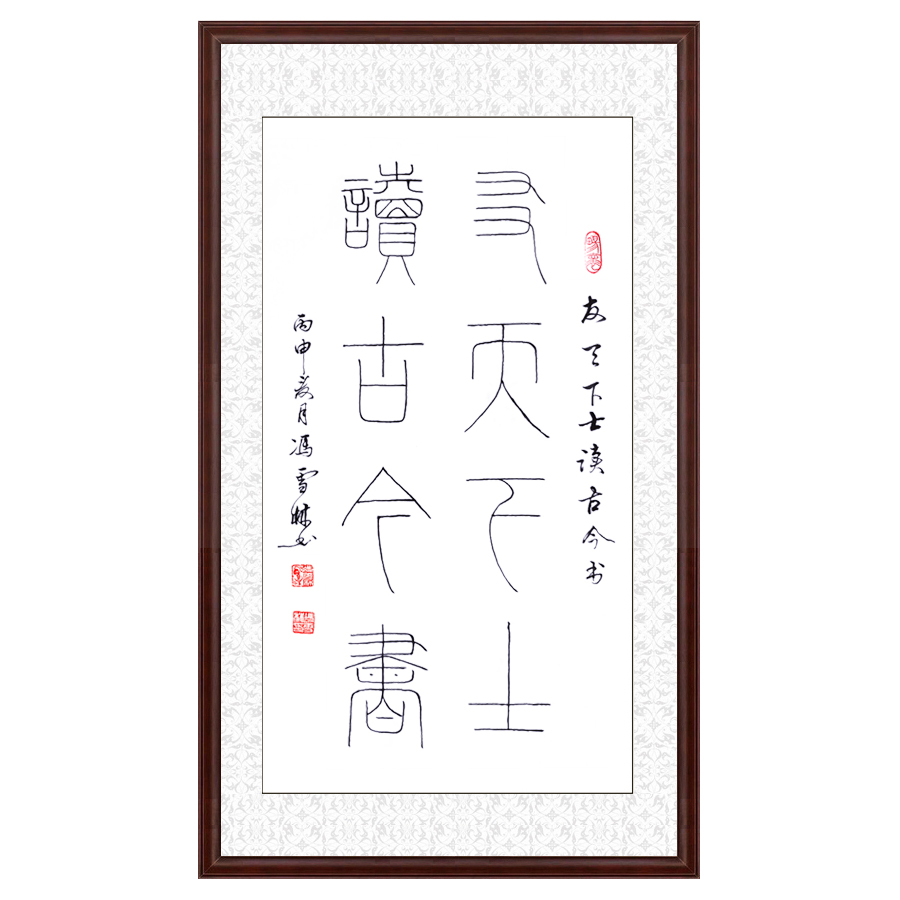 友天下士读古今书
友天下士
讀古今書
丙申夏月馮雪林书